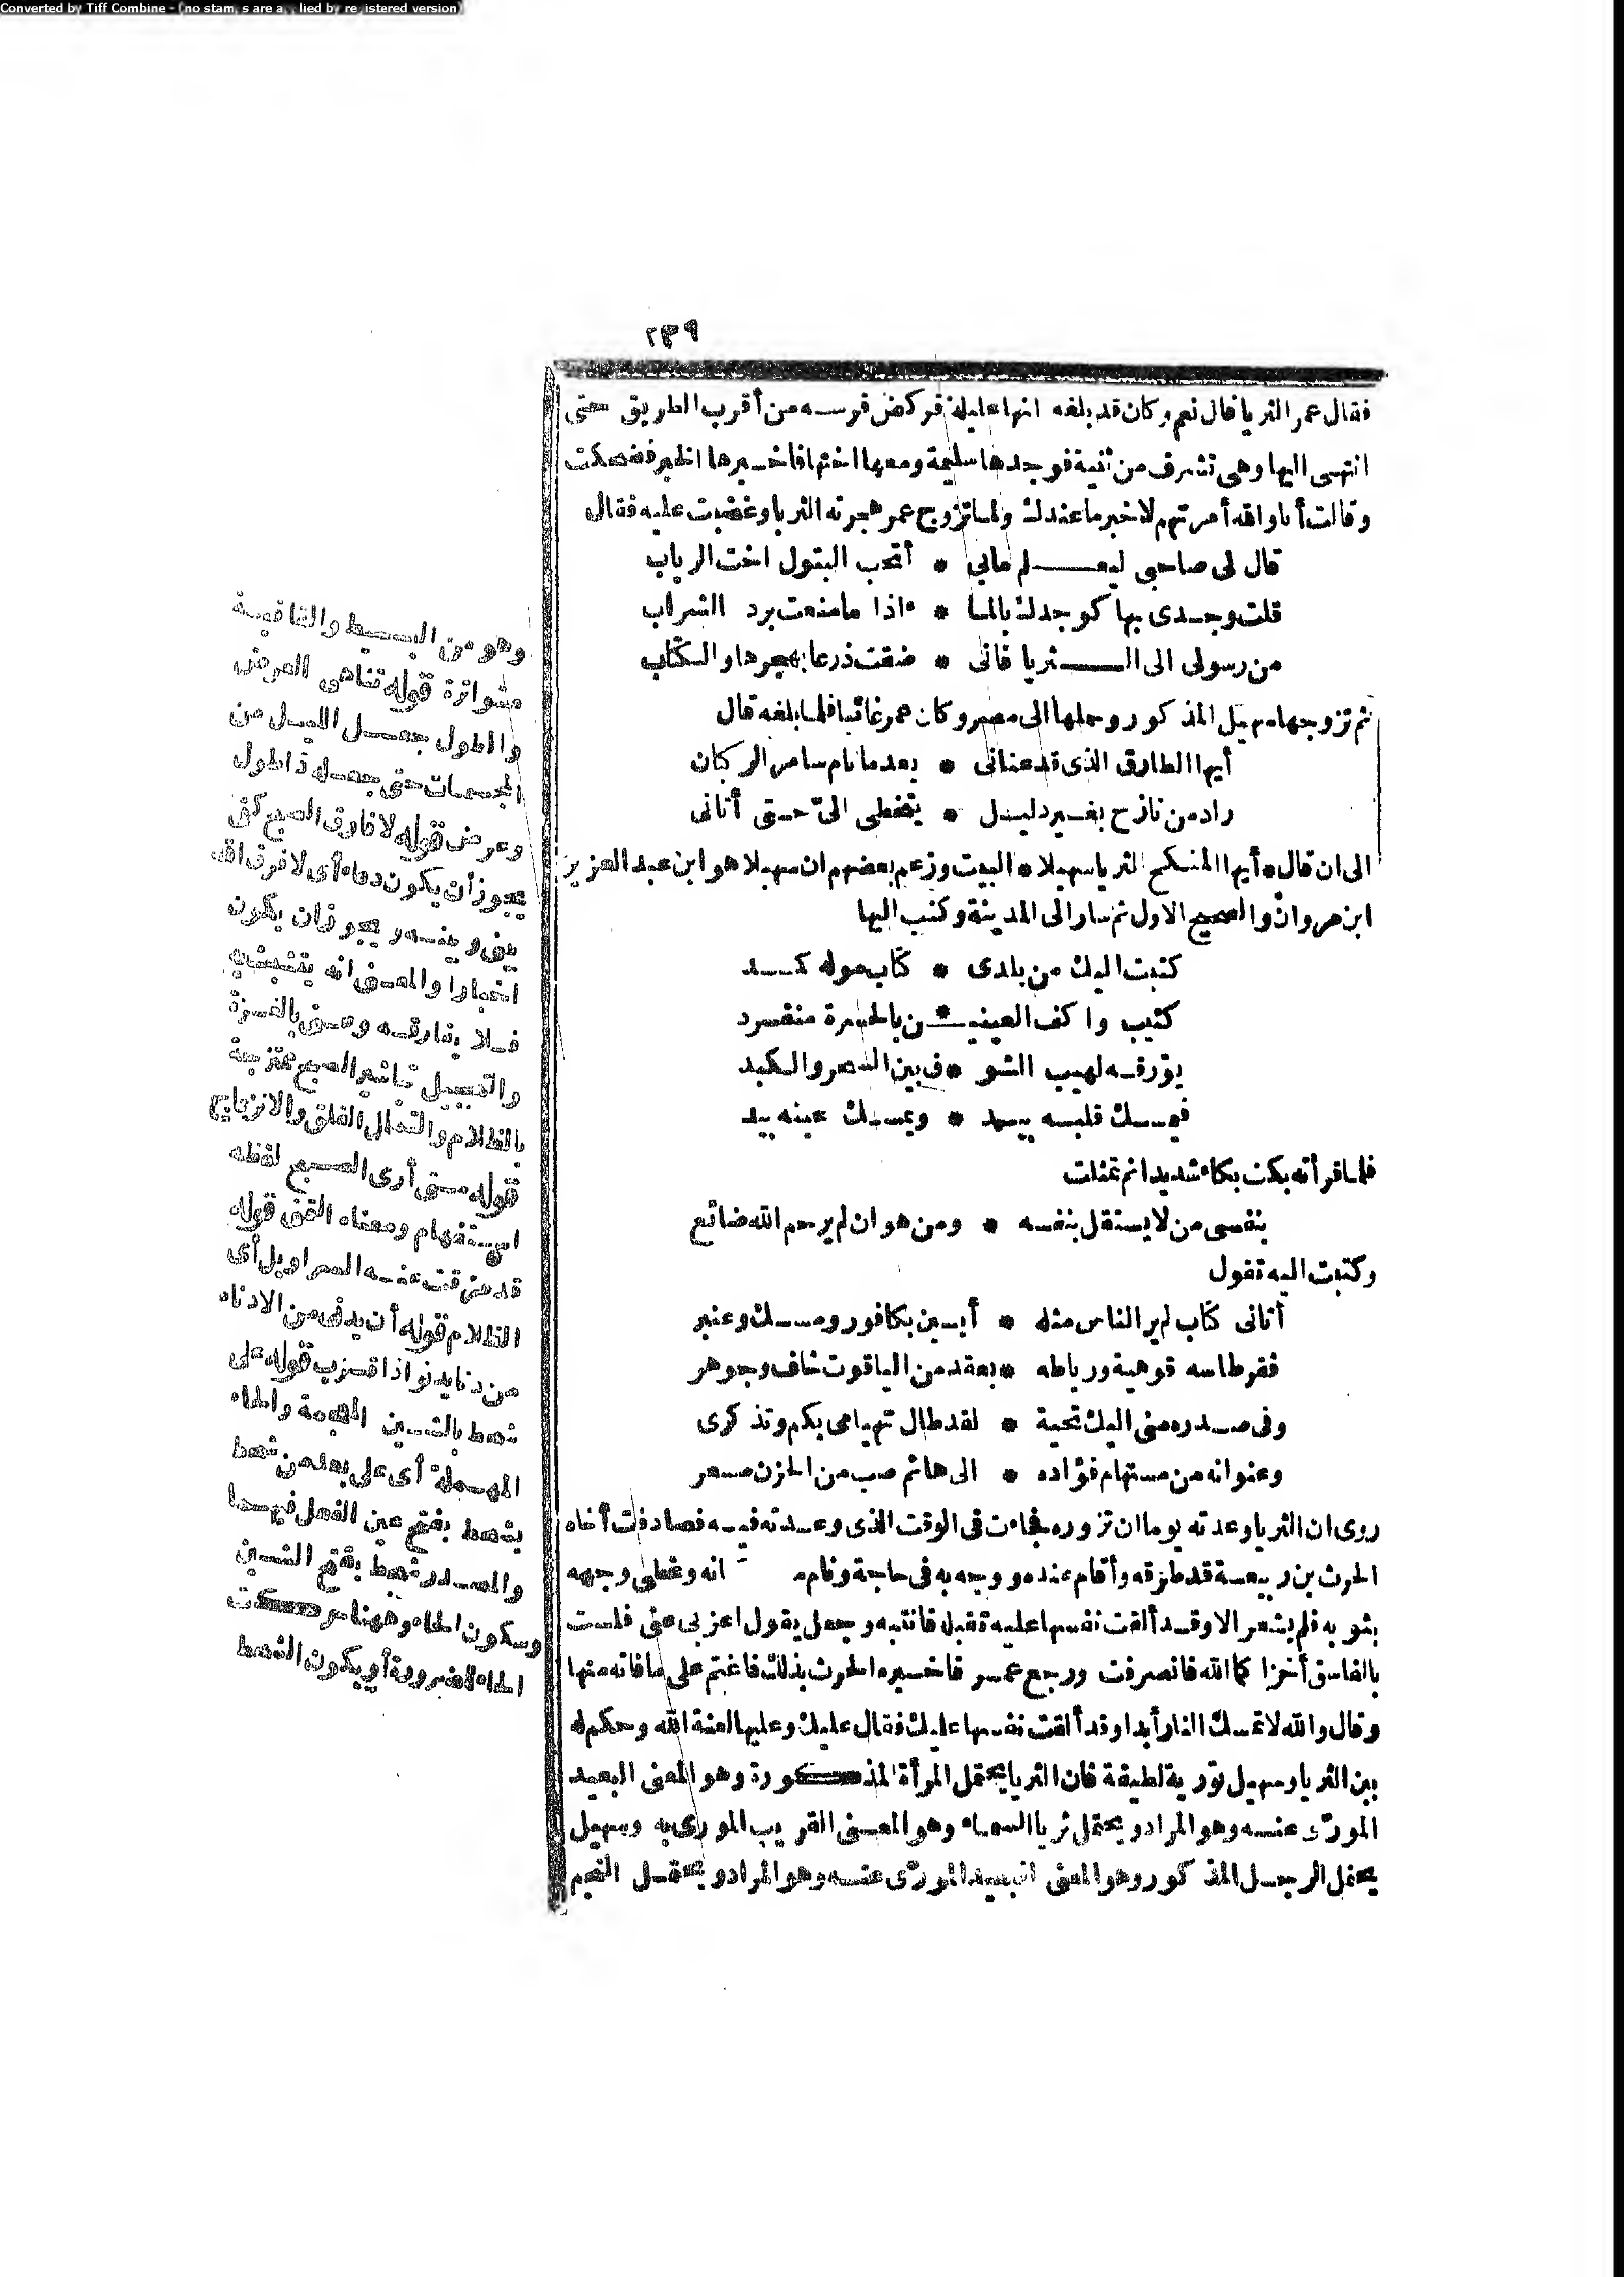 Converted by Tiff Combine - (no stamps are applied by registered version)
٢٣٩
فقال عمر الثريا قال نعم وكان قد بلغه انها عليلة فركض فرسه من أقرب الطريق حتى
انتهى اليها وهى تتشرف من ثنية فوجدها سليمة ومعها اختها فاخبرها الخبر فضحكت
وقالت أنا والله أمرتهم لاخبر ما عندك ولما تزوج عمر هجرته الثريا وغضبت عليه فقال
قال لى صاحبى ليعلم مابي * أتحب البتول اخت الرباب
قلت وجدى بها كوجدك بالما * ء اذا ما منعت برد الشراب
من رسولى الى الثريا فانى * ضقت ذرعا بهجرها والكتاب
ثم تزوجها سهيل المذكور وحملها الى مصر وكان عمر غائبا فلما بلغه قال
أيها الطارق الذى قد عنانى * بعد ما نام سامر الركبان
زاد من نازح بغير دليل * يتخطى الىّ حتى أتانى
الى ان قال * أيها المنكح الثريا سهيلا * البيت وزعم بعضهم ان سهيلا هو ابن عبد العزيز
ابن مروان والصحيح الاول ثم سار الى المدينة وكتب اليها
كتبت اليك من بلدى * كتاب موله كمد
كئيب واكف العينيـ * ـن بالحسرة منفرد
يؤرقه لهيب الشو * ق بين السحر والكبد
فيمسك قلبه بيد * ويمسك عينه بيد
فلما قرأته بكت بكاء شديدا ثم تمثلت
بنفسى من لا يستقل بنفسه * ومن هو ان لم يرحم الله ضائع
وكتبت اليه تقول
أتانى كتاب لم ير الناس مثله * أبين بكافور ومسك وعنبر
فقرطاسه قوهية ورباطه * بعقد من الياقوت صاف وجوهر
وفى صدره منى اليك تحية * لقد طال تهيامى بكم وتذكرى
وعنوانه من مستهام فؤاده * الى هائم صب من الحزن مسعر
روى ان الثريا وعدته يوما ان تزوره فجاءت فى الوقت الذى وعدته فيه فصادفت أخاه
الحرث بن ربيعة قد طرقه وأقام عنده ووجه به فى حاجة ونام م انه وغطى وجهه
بثوبه فلم يشعر الا وقد ألقت نفسها عليه تقبله فانتبه وجعل يقول اعزبى عنى فلست
بالفاسق أخزا كما الله فانصرفت ورجع عمر فاخبره الحرث بذلك فاغتم على ما فاته منها
وقال والله لا تمسك النار أبدا وقد ألقت نفسها عليك فقال عليك وعليها لعنة الله وحكم له
بين الثريا وسهيل تورية لطيفة فان الثريا يحتمل المرأة المذكورة وهو المعنى البعيد
المورّى عنه وهو المراد ويحتمل ثريا السماء وهو المعنى القريب المورى به وسهيل
يحتمل الرجل المذكور وهو المعنى البعيد المورّى عنه وهو المراد ويحتمل النجم
وهو من البسيط والقافية
متواترة قوله تناهى العرض
والطول جعل الليل من
المجسمات حتى جعله ذا طول
وعرض قوله لا فارق الصبح كفى
يجوز أن يكون دعاء أى لا فرق الله
بينى وبينه ويجوز ان يكون
اخبارا والمعنى انه يتشبث به
فلا يفارقه وعنى بالغرة
والتحجيل تباشير الصبح ممتزجة
بالظلام والتململ القلق والانزعاج
قوله متى أرى الصبح لفظه
استفهام ومعناه التمنى قوله
قد مزقت عنه السراويل أى
الظلام قوله أن يدنى من الادناء
من دنا يدنو اذا قرب قوله على
شحط بالشين المعجمة والحاء
المهملة أى على بعد من شحط
يشحط بفتح عين الفعل فيهما
والمصدر شحط بفتح الشين
وسكون الحاء وههنا حركت
الحاء للضرورة أو يكون الشحط